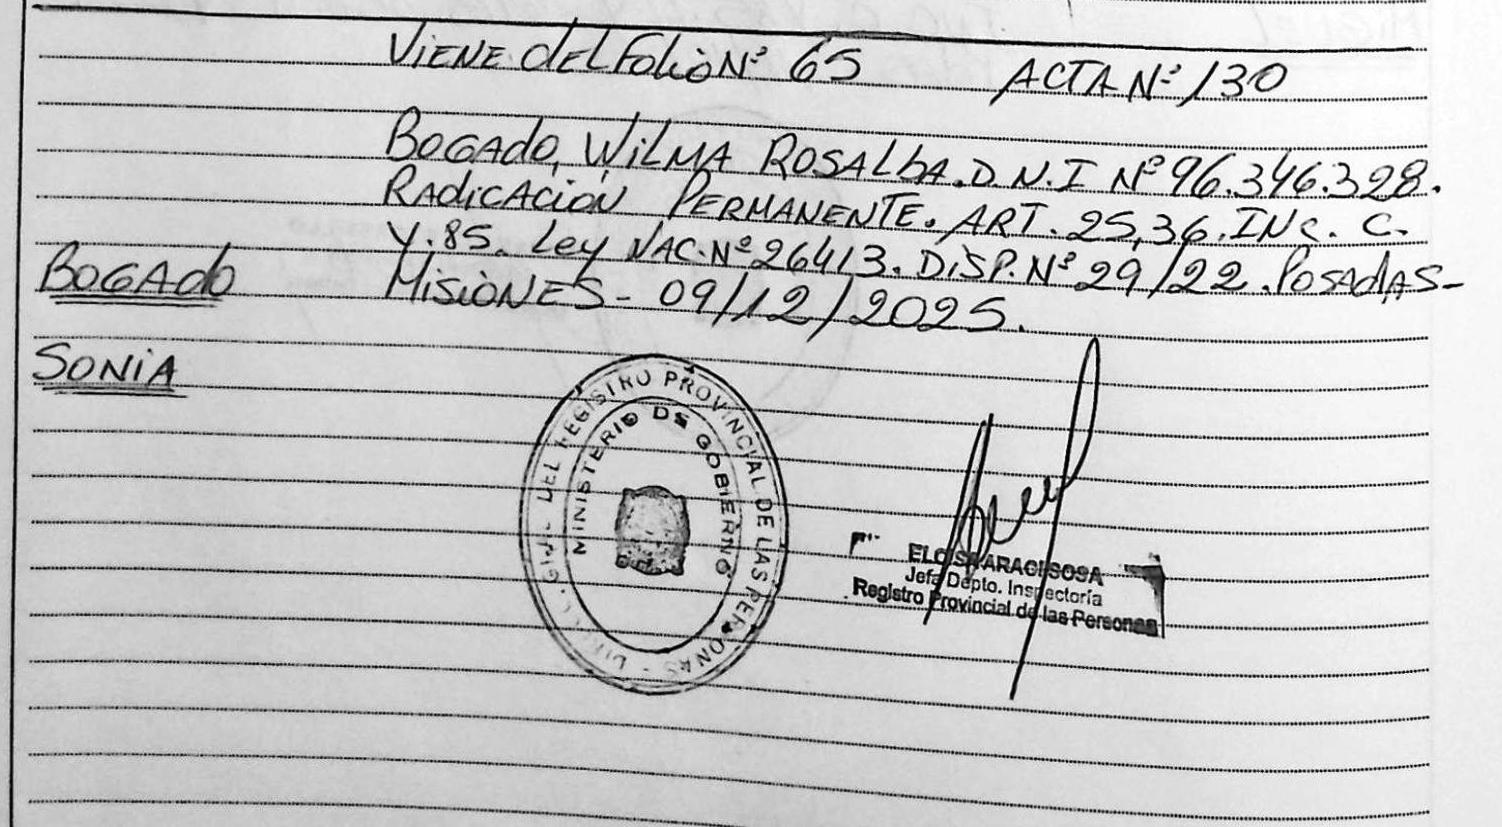 Viene del Folio Nº 65 ACTA Nº 130
Bogado, Wilma Rosalba. D.N.I Nº 96.346.328.
Radicación Permanente. Art. 25,36. Inc. C.
Y. 85. Ley Nac. Nº 26413. Disp. Nº 29/22. Posadas-
Misiones- 09/12/2025.
Bogado
Sonia
DEL REGISTRO PROVINCIAL DE LAS PERSONAS
MINISTERIO DE GOBIERNO
SOSA
Jefa Depto. Inspectoría
Registro Provincial de las Personas